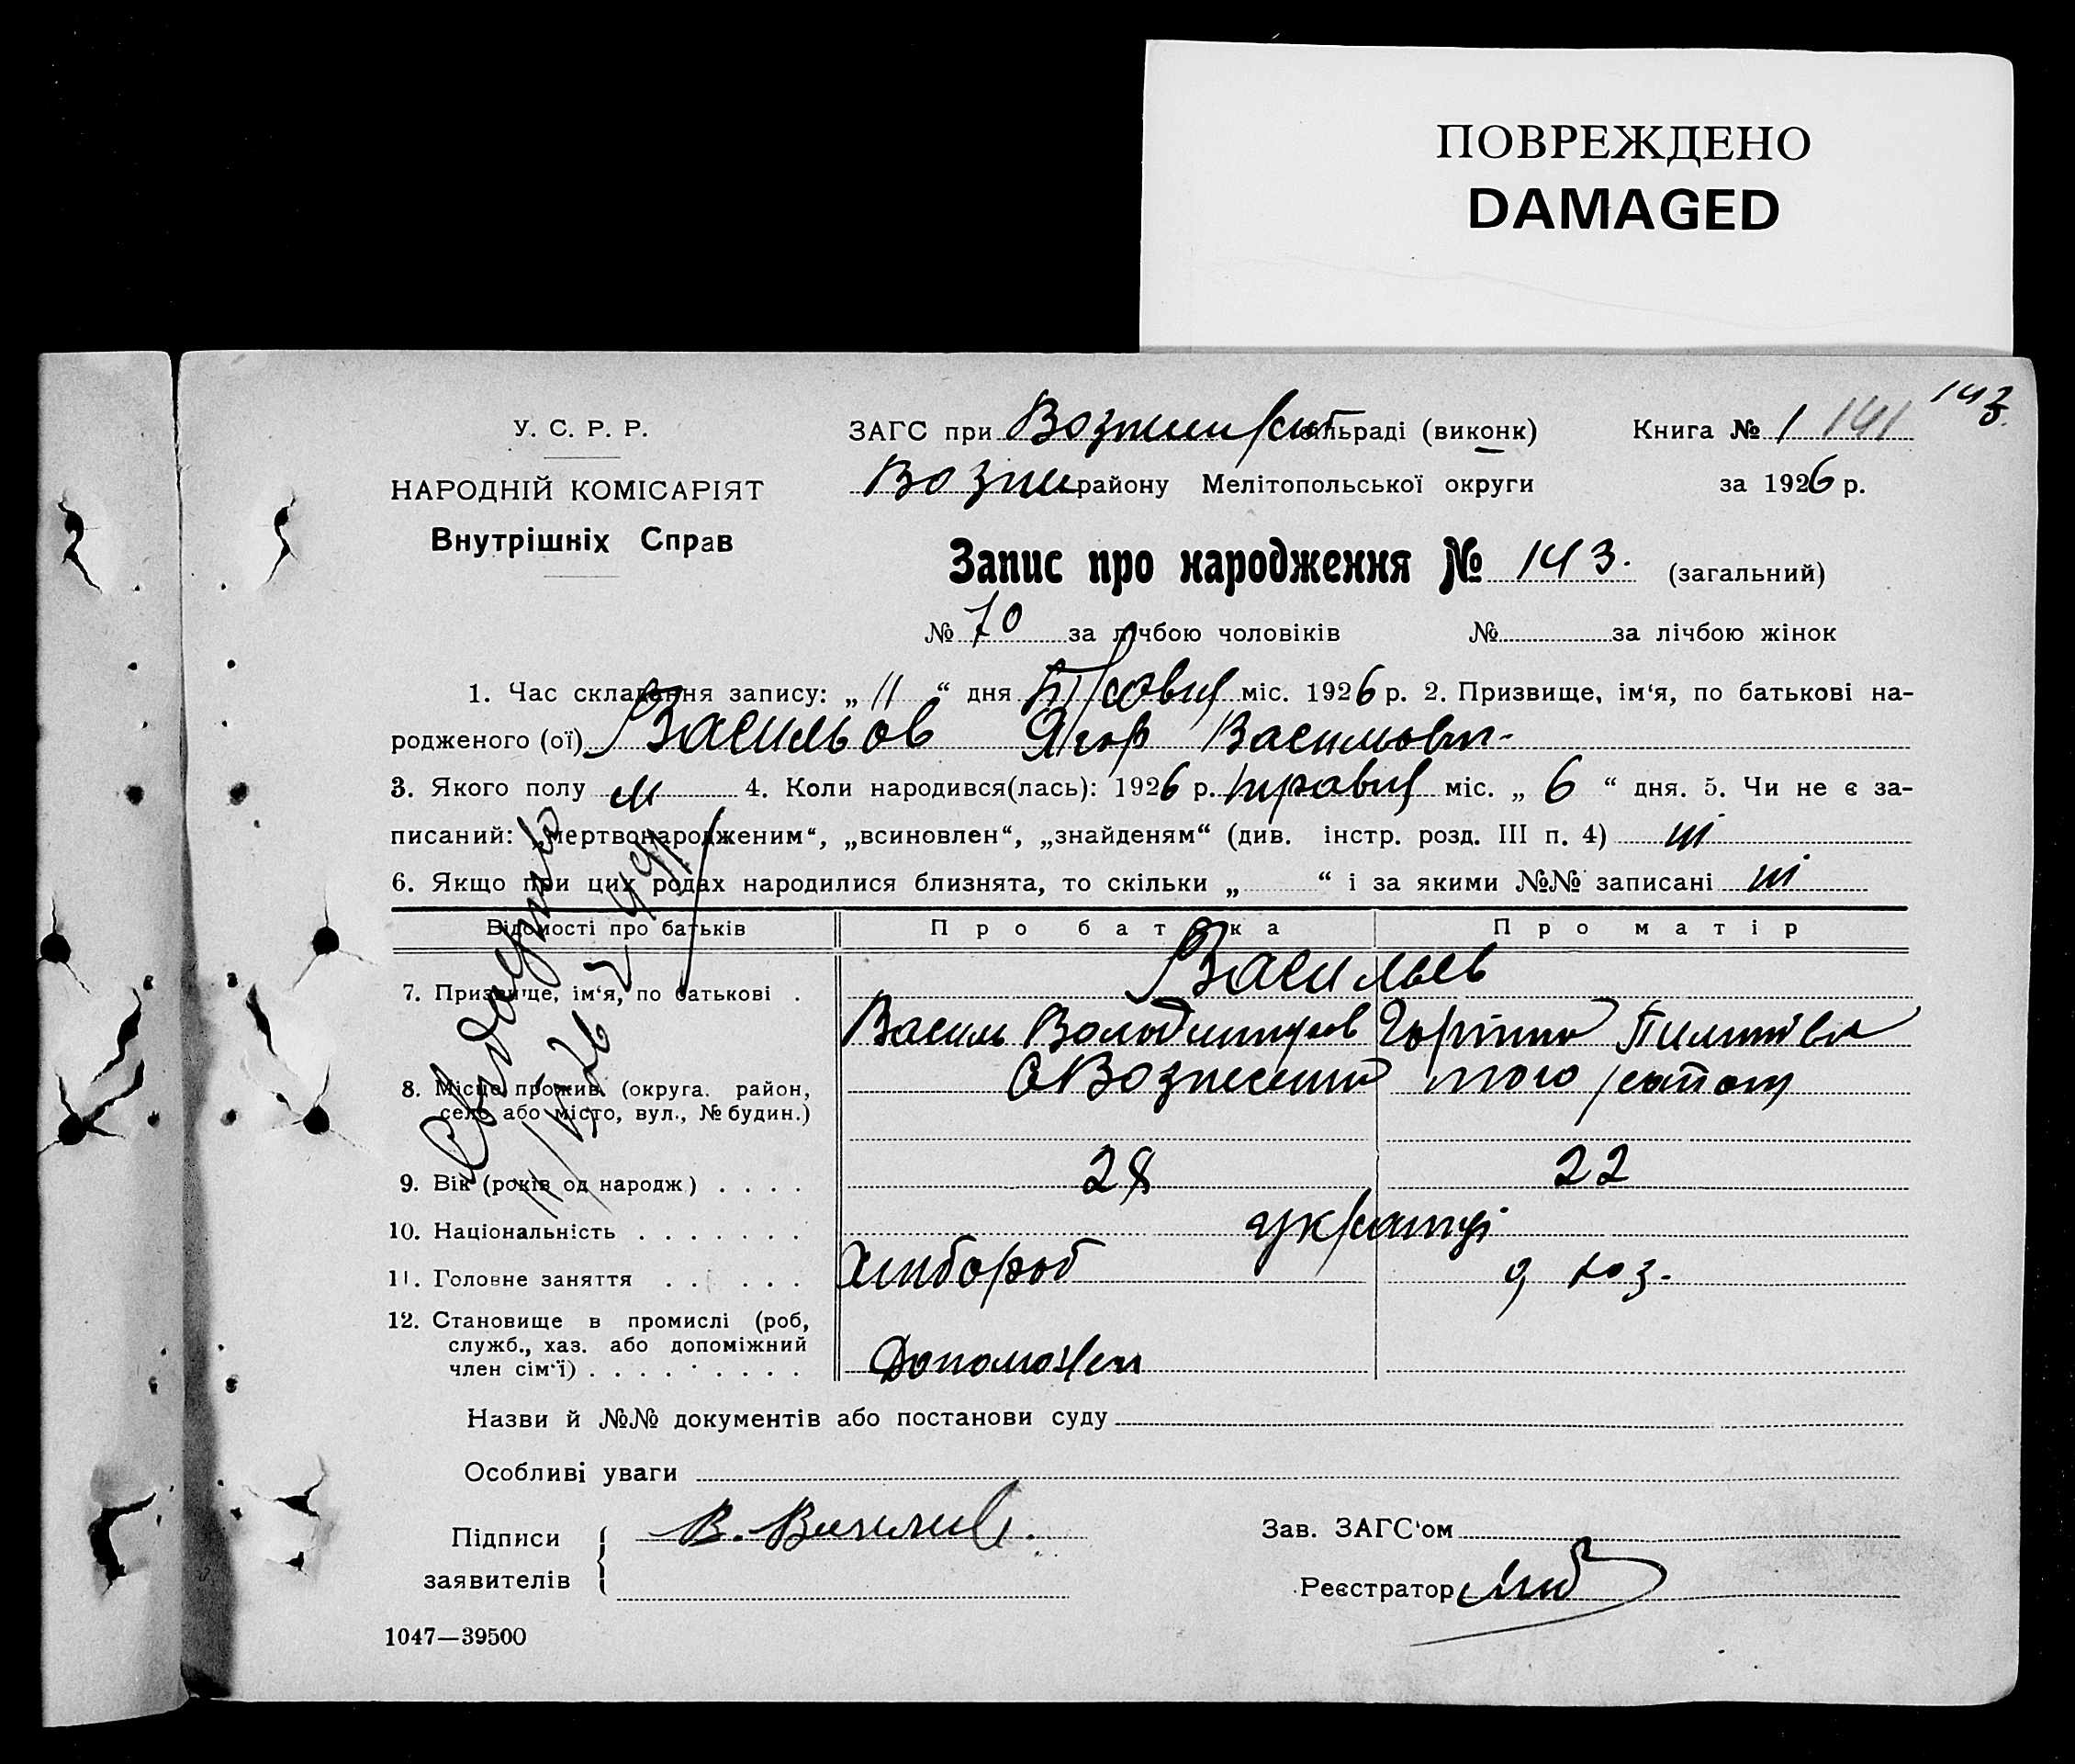 ПОВРЕЖДЕНО
DAMAGED
143
У. С. Р. Р.
НАРОДНІЙ КОМІСАРІЯТ
Внутрішніх Справ
ЗАГС при сільраді (виконк)
Книга № 1 141
району Мелітопольської округи
за 1926 р.
Запис про народження № 143. (загальний)
№ 70 за лічбою чоловіків № за лічбою жінок
1. Час складання запису: „ 11 “ дня Травня міс. 1926 р. 2. Призвище, ім‘я, по батькові на-
родженого (ої) Васильов Ягор Васильович
3. Якого полу м 4. Коли народився(лась): 1926 р. травня міс. „ 6 “ дня. 5. Чи не є за-
писаний: „мертвонародженим“, „всиновлен“, „знайденям“ (див. інстр. розд. III п. 4) ні
6. Якщо при цих родах народилися близнята, то скільки „ “ і за якими №№ записані ні
Відомості про батьків Про батька Про матір
7. Призвище, ім‘я, по батькові . Васильев
Василь Володимиров
8. Місце прожив. (округа. район, с Вознесенка
село або місто, вул., № будин.)
9. Вік (років од народж) . . . . 28 22
10. Національність . . . . . . . українці
11. Головне заняття . . . . . . Хлібороб
12. Становище в промислі (роб,
служб., хаз. або допоміжний
член сім‘ї) . . . . . . . . .
Назви й №№ документів або постанови суду
Особливі уваги
Підписи В. Васильев.
заявителів
Зав. ЗАГС‘ом
Реєстратор
1047—39500